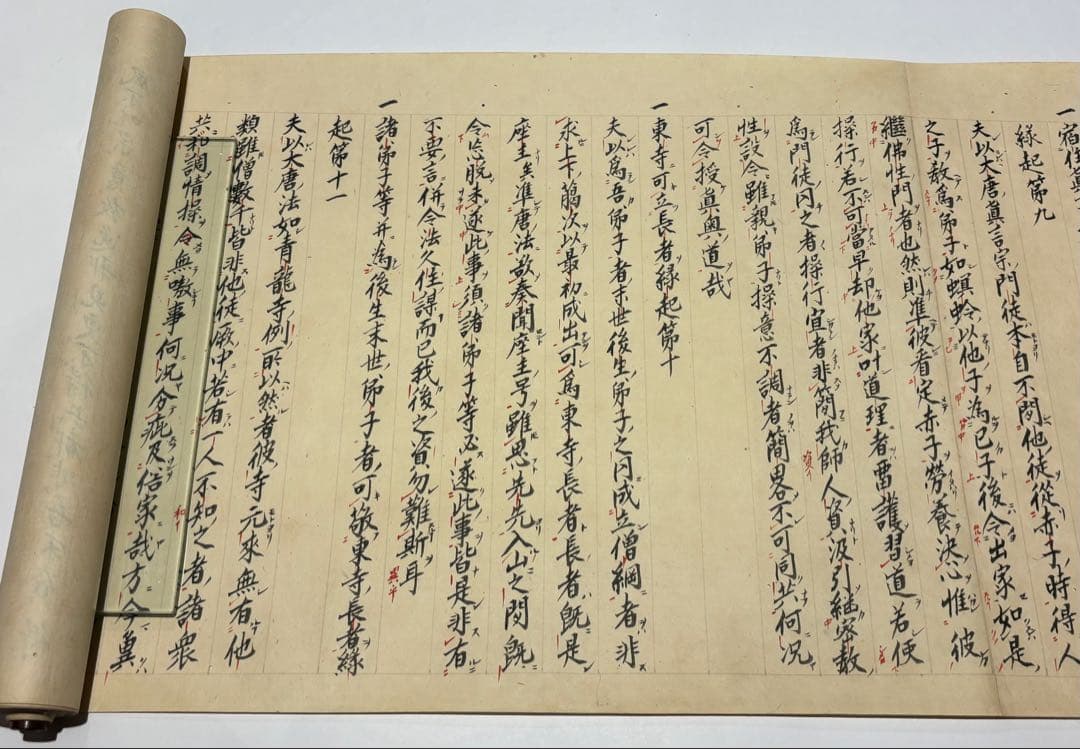 一宿住真
縁起第九
夫以大唐真言宗門徒本自不問他徒従赤子時得人
之子教為弟子如螟蛉以他子為己子後令出家如是
継佛性門者也然則准彼看定赤子労養決心惟彼
操行若不可當早却他家叶道理者留護習道若使
為門徒同之者操行宜者非簡我師人資汲引継密教
性設令雖親弟子操意不調者簡畧不可同共何况
可令授真奥道哉
一東寺可立長者縁起第十
夫以為吾弟子者末世後生弟子之同成立僧綱者非
求上下﨟次以最初成出可為東寺長者長者既是
座主矣準唐法欲奏聞座主号雖思先先入山之間既
令忘脱未遂此事須諸弟子等必遂此事皆是非有
不要言併令法久住謀而已我後之資勿難斯耳
一諸弟子等并為後生末世弟子者可敬東寺長者縁
起第十一
夫以大唐法如青龍寺例所以然者彼寺元来無有他
類雖僧數千皆非他徒厥中若有一人不知之者諸衆
共和調情操令無嗷事何况分疵及俗家哉方今冀